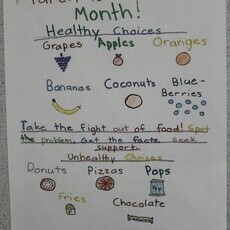 Month!
Healthy Choices
Grapes Apples Oranges
Bananas Coconuts Blue-
Berries
Take the fight out of food! Spot
the problem. Get the facts. Seek
support.
Unhealthy Choices
Donuts Pizzas Pops
Fries
Chocolate